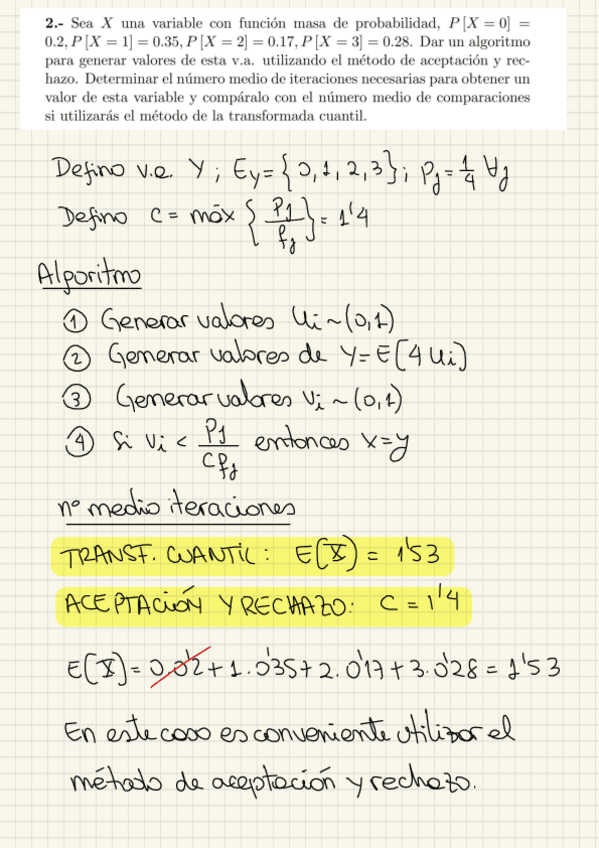 2.- Sea X una variable con función masa de probabilidad, P [X = 0] =
0.2, P [X = 1] = 0.35, P [X = 2] = 0.17, P [X = 3] = 0.28. Dar un algoritmo
para generar valores de esta v.a. utilizando el método de aceptación y rec-
hazo. Determinar el número medio de iteraciones necesarias para obtener un
valor de esta variable y compáralo con el número medio de comparaciones
si utilizarás el método de la transformada cuantil.
Defino v.a. Y ; Ey = {0,1,2,3} ; Pj = 1/4 ∀j
Defino c = máx { Pj / fj } = 1'4
Algoritmo
① Generar valores Ui ~ (0,1)
② Generar valores de Y = E[4 Ui]
③ Generar valores Vi ~ (0,1)
④ Si Vi < Pj / cfj entonces X=Y
nº medio iteraciones
TRANSF. CUANTIL : E[X] = 1'53
ACEPTACIÓN Y RECHAZO : C = 1'4
E[X] = 0.0'2 + 1.0'35 + 2.0'17 + 3.0'28 = 1'53
En este caso es conveniente utilizar el
método de aceptación y rechazo.